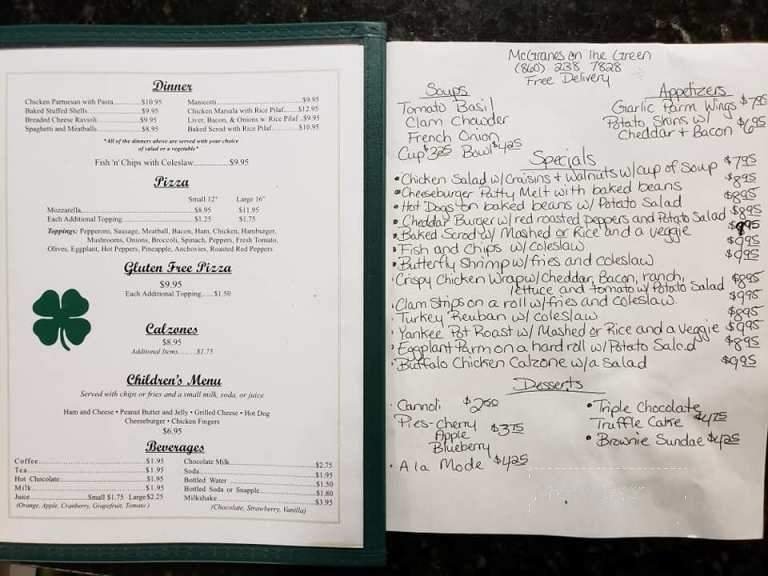 Dinner
Chicken Parmesan with Pasta..........$10.95
Baked Stuffed Shells..........$9.95
Breaded Cheese Ravioli..........$9.95
Spaghetti and Meatballs..........$8.95
Manicotti..........$9.95
Chicken Marsala with Rice Pilaf.....$12.95
Liver, Bacon, & Onions w/ Rice Pilaf ..$9.95
Baked Scrod with Rice Pilaf..........$10.95
*All of the dinners above are served with your choice
of salad or a vegetable*
Fish 'n' Chips with Coleslaw..........$9.95
Pizza
Small 12" Large 16"
Mozzarella..........$8.95 $11.95
Each Additional Topping..........$1.25 $1.75
Toppings: Pepperoni, Sausage, Meatball, Bacon, Ham, Chicken, Hamburger,
Mushrooms, Onions, Broccoli, Spinach, Peppers, Fresh Tomato,
Olives, Eggplant, Hot Peppers, Pineapple, Anchovies, Roasted Red Peppers
Gluten Free Pizza
$9.95
Each Additional Topping.....$1.50
Calzones
$8.95
Additional Items.........$1.75
Children's Menu
Served with chips or fries and a small milk, soda, or juice
Ham and Cheese • Peanut Butter and Jelly • Grilled Cheese • Hot Dog
Cheeseburger • Chicken Fingers
$6.95
Beverages
Coffee..........$1.95
Tea..........$1.95
Hot Chocolate..........$1.95
Milk..........$1.95
Juice..........Small $1.75 Large$2.25
(Orange, Apple, Cranberry, Grapefruit, Tomato )
Chocolate Milk..........$2.75
Soda..........$1.95
Bottled Water ..........$1.50
Bottled Soda or Snapple..........$1.80
Milkshake..........$3.95
(Chocolate, Strawberry, Vanilla)
McGranes on The Green
(860) 238 7828
Free Delivery
Soups
Tomato Basil
Clam Chowder
French Onion
Cup $3.25 Bowl $4.25
Appetizers
Garlic Parm Wings $7.95
Potato Skins w/ $6.95
Cheddar + Bacon
Specials
• Chicken Salad w/ Craisins + Walnuts w/ cup of Soup $7.95
• Cheeseburger Patty Melt with baked beans $8.95
• Hot Dogs on baked beans w/ Potato Salad $8.95
• Cheddar Burger w/ red roasted peppers and Potato Salad $8.95
• Baked Scrod w/ Mashed or Rice and a veggie $9.95
• Fish and Chips w/ coleslaw $9.95
• Butterfly Shrimp w/ fries and coleslaw $9.95
• Crispy Chicken Wrap w/ Cheddar, Bacon, ranch,
lettuce and tomato w/ Potato Salad $8.95
• Clam Strips on a roll w/ fries and coleslaw $9.95
• Turkey Reuban w/ coleslaw $8.95
• Yankee Pot Roast w/ Mashed or Rice and a Veggie $9.95
• Eggplant Parm on a hard roll w/ Potato Salad $8.95
• Buffalo Chicken Calzone w/ a Salad $9.95
Desserts
• Cannoli $2.50
Pies - cherry $3.75
Apple
Blueberry
• A la Mode $4.25
• Triple Chocolate
Truffle Cake $4.75
• Brownie Sundae $4.25